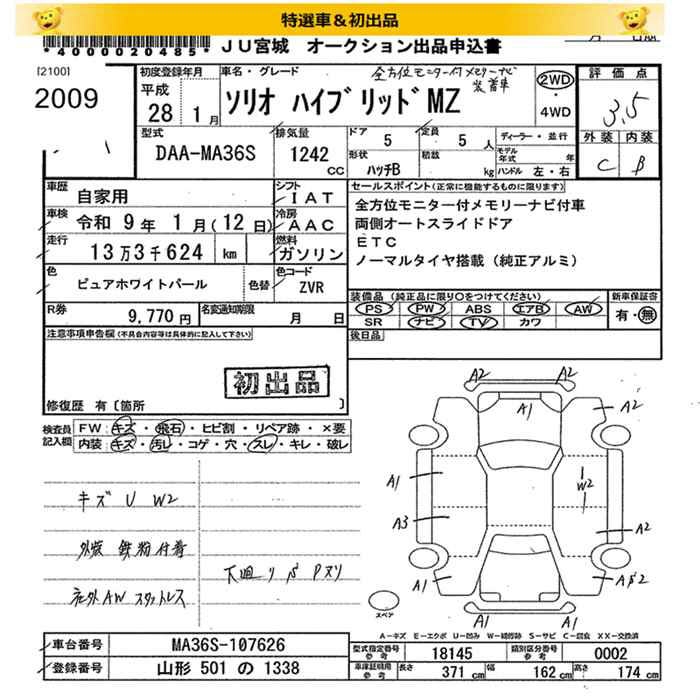 特選車＆初出品
*40000020485*
ＪＵ宮城 オークション出品申込書
[2100]
2009
初度登録年月
平成
28 1月
車名・グレード
全方位モニター付メモリーナビ
装着車
ソリオ ハイブリッドMZ
2WD
・
4WD
評価点
3,5
外装 内装
C B
型式
DAA-MA36S
排気量
1242
CC
ドア
5
定員
5 人
形状
ハッチB
積載
kg
ディーラー・並行
モデル年式 年
ハンドル 左・右
車歴
自家用
シフト
IAT
車検
令和 9年 1月(12日)
冷房
AAC
走行
13万3千624 km
燃料
ガソリン
色
ピュアホワイトパール
色替
色コード
ZVR
R券
9,770 円
名変通知期限
月 日
セールスポイント(正常に機能するものに限ります)
全方位モニター付メモリーナビ付車
両側オートスライドドア
ETC
ノーマルタイヤ搭載（純正アルミ）
装備品(純正品に限り○をつけてください)
PS PW ABS エアB AW
SR ナビ TV カワ
新車保証書
有・無
後日品
注意事項申告欄(不具合内容等は具体的に記入して下さい)
初出品
修復歴 有〔箇所 〕
検査員記入欄
FW：キズ・飛石・ヒビ割・リペア跡・×要
内装：キズ・汚レ・コゲ・穴・スレ・キレ・破レ
キズ U W2
外装 鉄粉付着
社外AW スタットレス
下廻り
A2
A2
A1
A2
A2
A1
A3
W2
A2
A1
A1
A1
スペア
A－キズ E－エクボ U－凹み W－補修跡 S－サビ C－腐食 XX－交換済
車台番号
MA36S-107626
登録番号
山形 501 の 1338
型式指定番号
参考
18145
類別区分番号
参考
0002
車庫証明用
参考
長さ
371 cm
幅
162 cm
高さ
174 cm